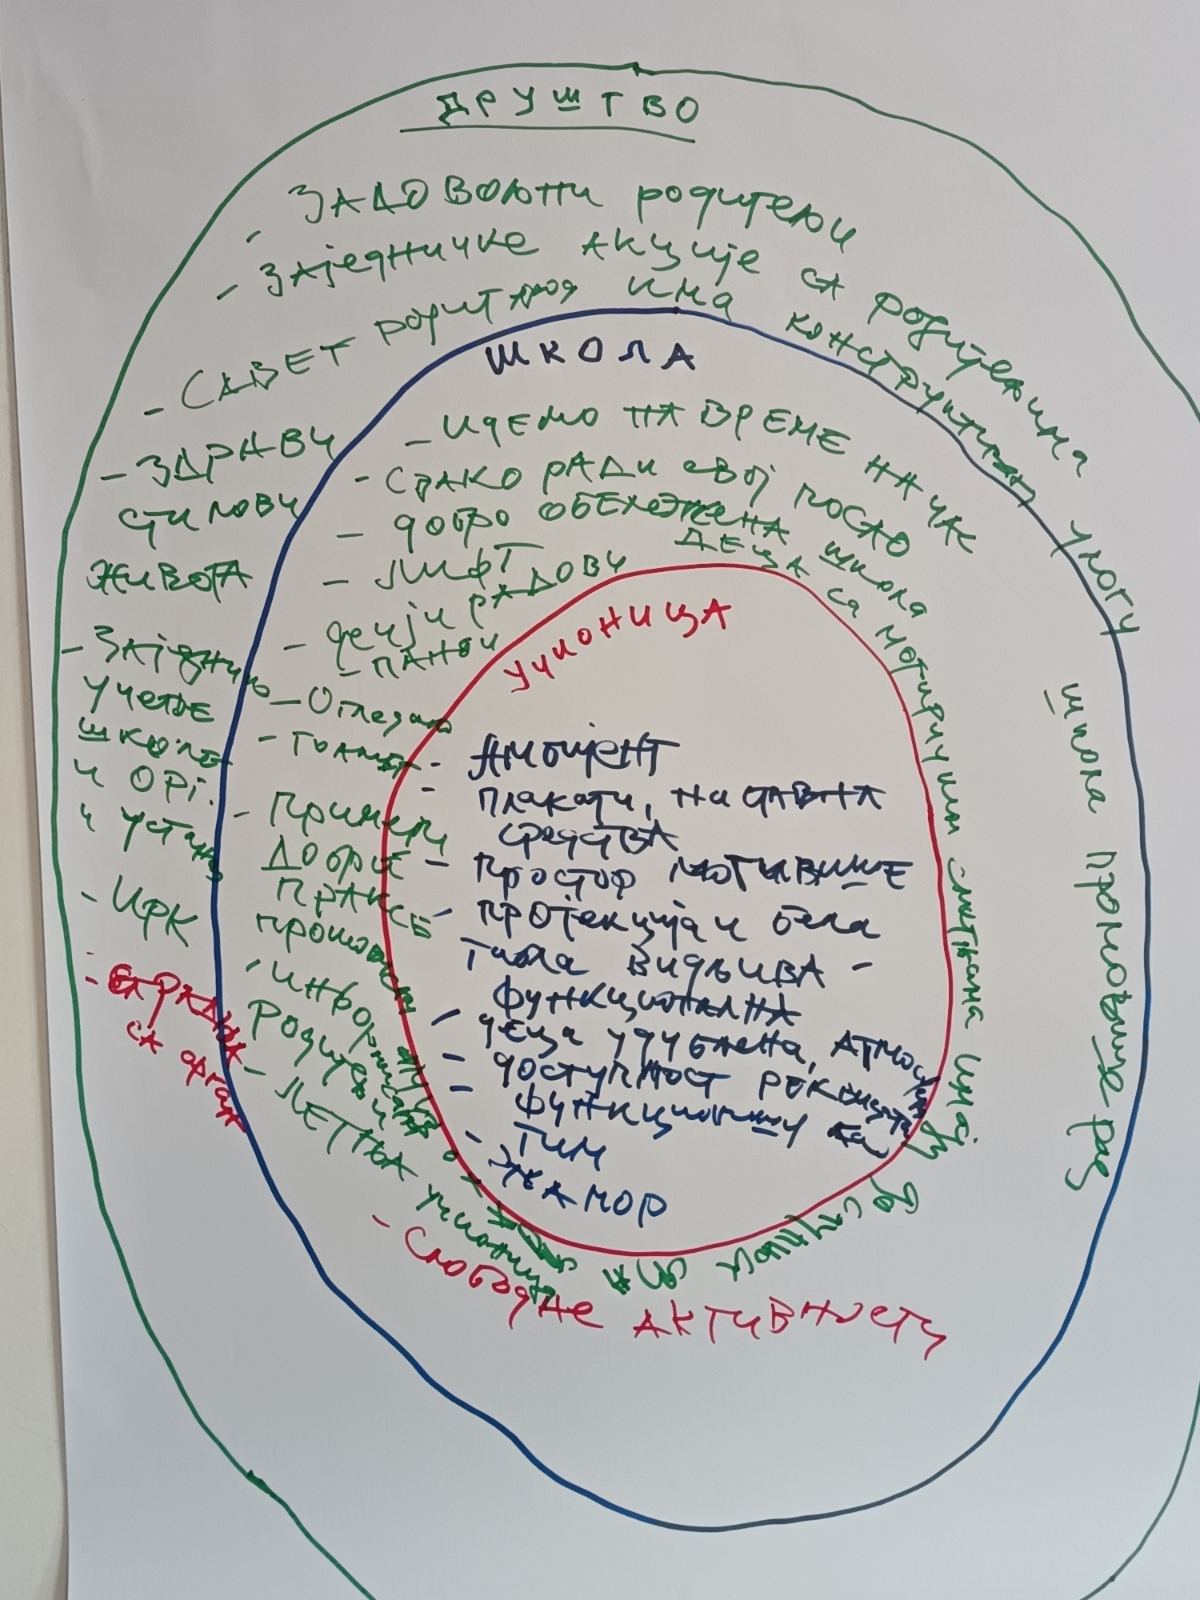 ДРУШТВО
- ЗАДОВОЉНИ родитељи
- Заједничке акције са родитељима
- САВЕТ родитеља има конструктивну улогу
- ЗДРАВИ
стилови
живота
- Заједничко
учење
школе
и орг.
и устан
- ЦРК
са орган
школа промовише рад
ШКОЛА
- идемо НА ВРЕМЕ НА ЧАС
- свако ради свој посао
- добро обележена школа
- ЛИФТ
- дечји радови
- панои
- Огледало
- тоалет
- Примери
ДОБРЕ
ПРАКСЕ
- ЛЕТЊА учионица
- Слободне активности
ДЕЦА са
УЧИОНИЦА
- Амбијент
- плакати, наставна
средства
- простор мотивише
- пројекција и бела
табла видљива -
функционална
- деца удубљена,
- доступност
функционишу као
- тим
- жамор